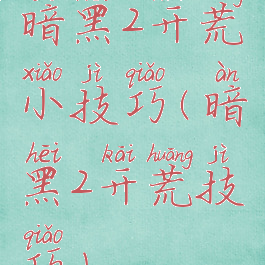 暗黑2开荒
xiǎo jì qiǎo àn
小技巧(暗
hēi kāi huāng jì
黑2开荒技
qiǎo
巧)